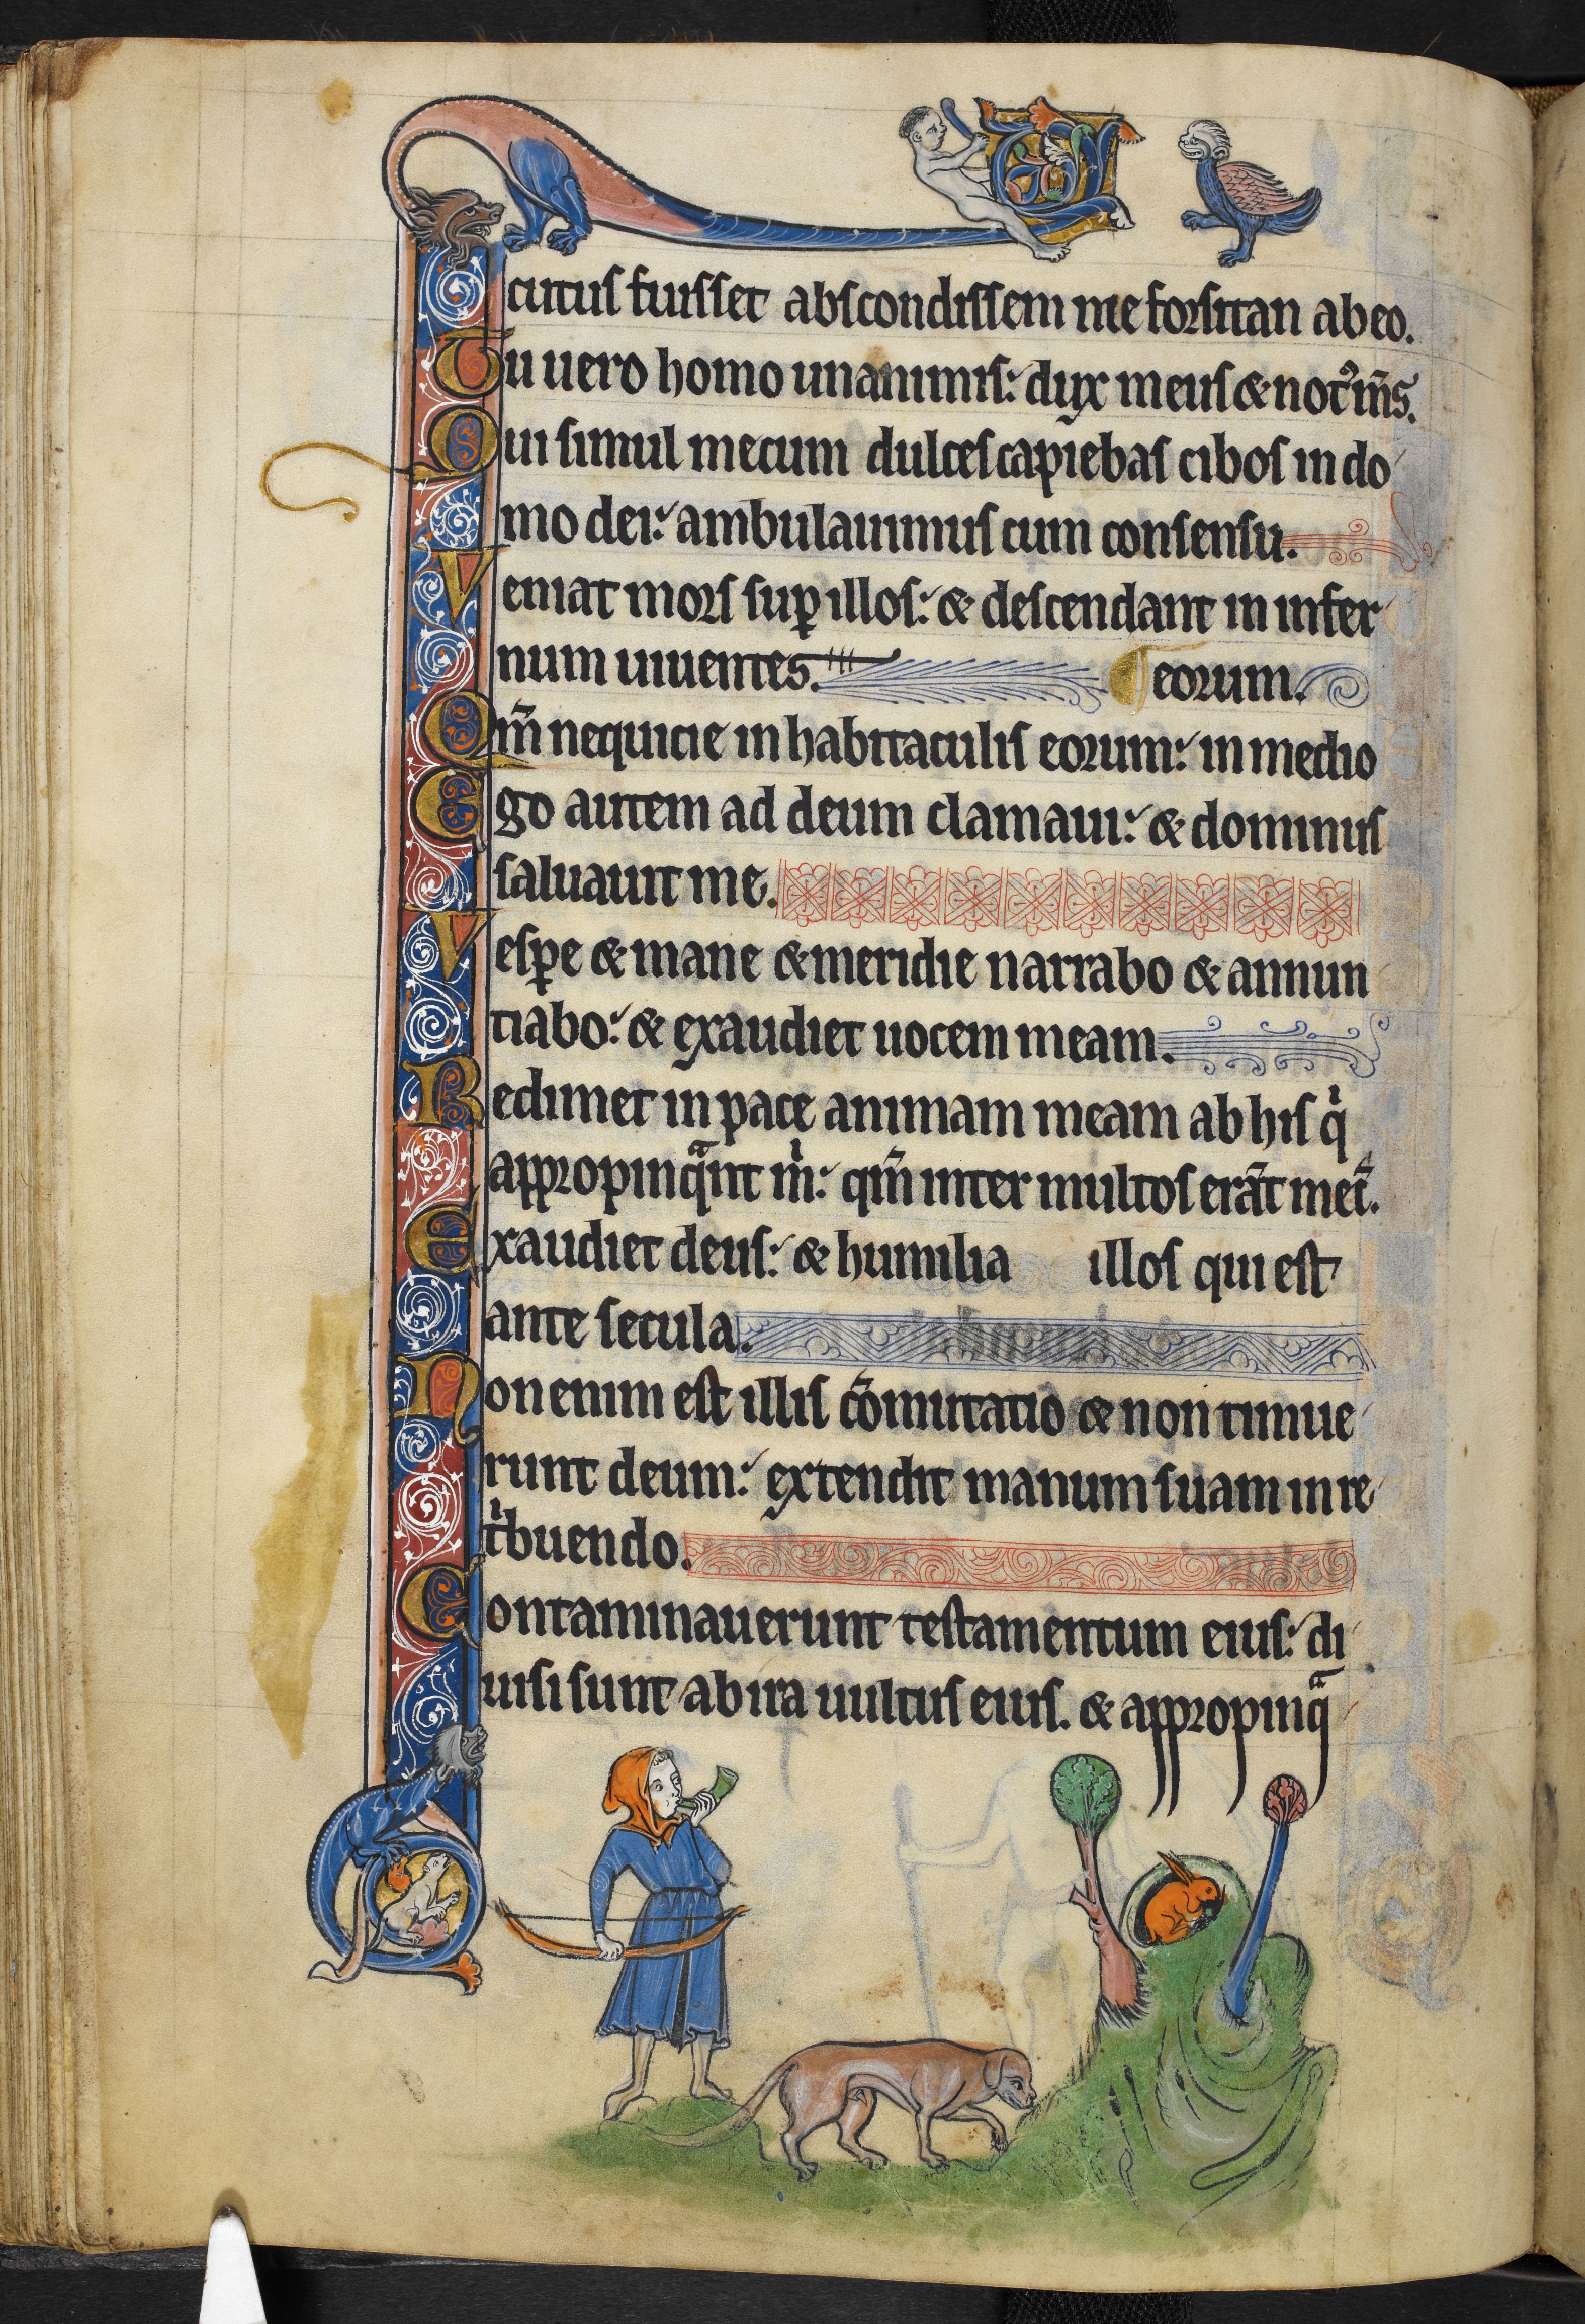 cutus fuisset abscondissem me forsitan ab eo.
Tu uero homo unanimis: dux meus & not᷒ m̄s.
Qui simul mecum dulces capiebas cibos in do
mo dei: ambulauimus cum consensu.
Veniat mors sup̱ illos: & descendant in infer
num uiuentes. eorum.
Qm̄ nequicie in habitaculis eorum: in medio
Ego autem ad deum clamaui: & dominus
saluauit me.
Vesp̱e & mane & meridie narrabo & annun
tiabo: & exaudiet uocem meam.
Redimet in pace animam meam ab his qͥ
appropinqᷓnt mͥ: qm̄ inter multos erāt mec̄.
Exaudiet deus: & humilia illos qui est
ante secula.
Non enim est illis cōmutatio & non timue
runt deum: extendit manum suam in re
tͥbuendo.
Contaminauerunt testamentum eius: di
uisi sunt ab ira uultus eius. & appropinqᷓ